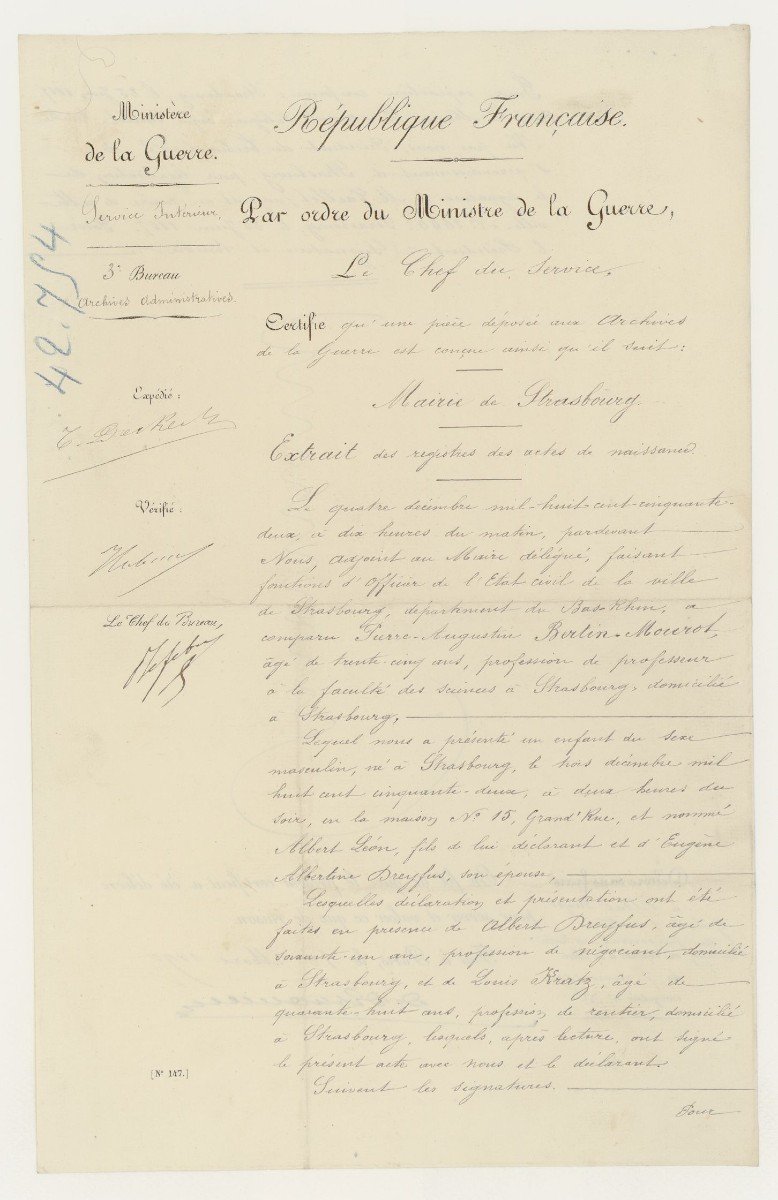 Ministère
de la Guerre.
Service Intérieur,
3e Bureau
Archives Administratives.
42.754
Expédié :
Vérifié :
Le Chef du Bureau,
[N° 147.]
République Française.
Par ordre du Ministre de la Guerre,
Le Chef du Service,
Certifie qu'une pièce déposée aux Archives
de la Guerre est conçue ainsi qu'il suit :
Mairie de Strasbourg.
Extrait des registres des actes de naissance.
Le quatre décembre mil-huit-cent-cinquante-
deux, à dix heures du matin, pardevant
Nous, adjoint au Maire délégué, faisant
fonctions d'Officier de l'Etat civil de la ville
de Strasbourg, département du Bas-Rhin, a
comparu Pierre-Augustin Bertin-Mourot,
âgé de trente-cinq ans, profession de professeur
à la faculté des sciences à Strasbourg, domicilié
à Strasbourg,
Lequel nous a présenté un enfant du sexe
masculin, né à Strasbourg, le trois décembre mil
huit cent cinquante-deux, à deux heures du
soir, en la maison N° 15, Grand'Rue, et nommé
Albert Léon, fils de lui déclarant et d'Eugène
Albertine Dreyfus, son épouse,
Lesquelles déclaration et présentation ont été
faites en présence de Albert Dreyfus, âgé de
soixante-un an, profession de négociant, domicilié
à Strasbourg, et de Louis Kratz, âgé de
quarante-huit ans, profession de rentier, domicilié
à Strasbourg, lesquels, après lecture, ont signé
le présent acte avec nous et le déclarant.
Suivent les signatures.
Pour